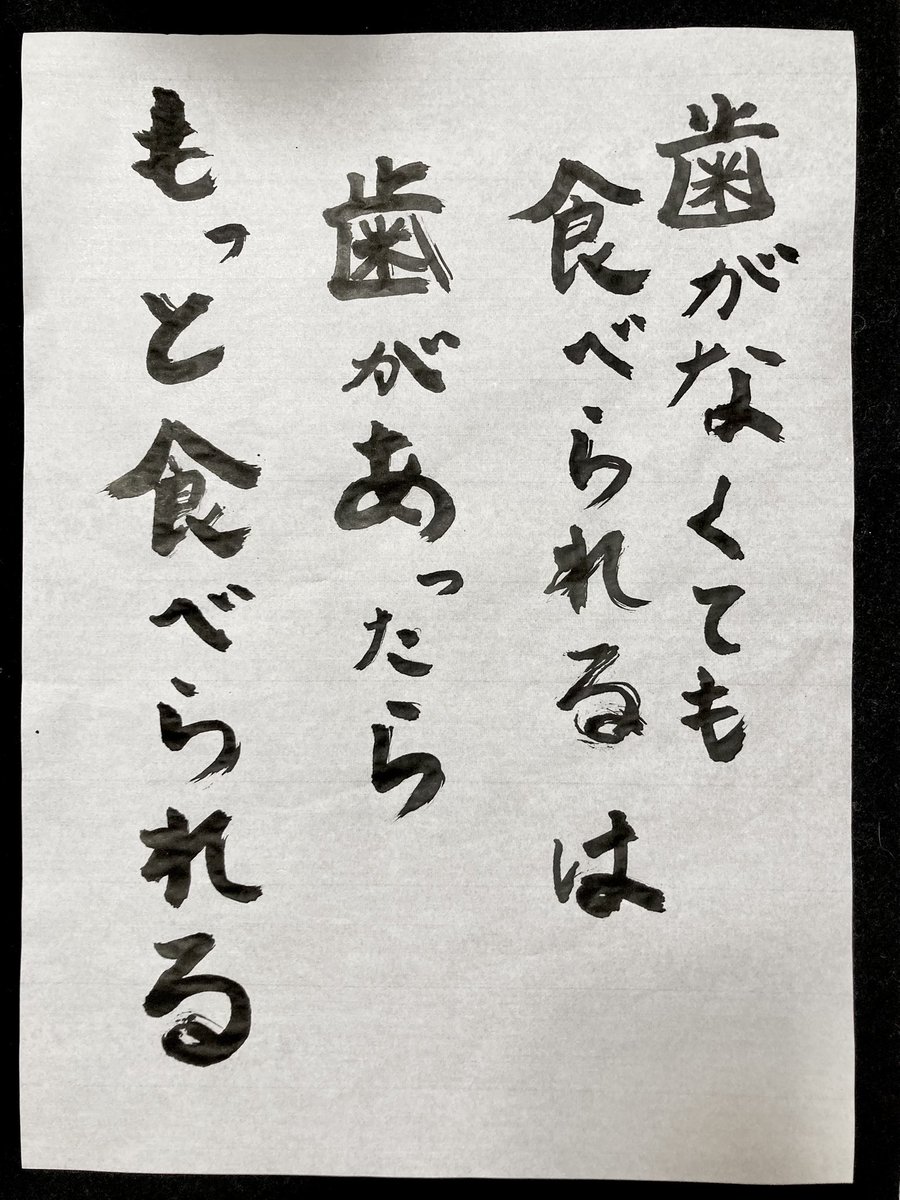 歯がなくても
食べられるは
歯があったら
もっと食べられる